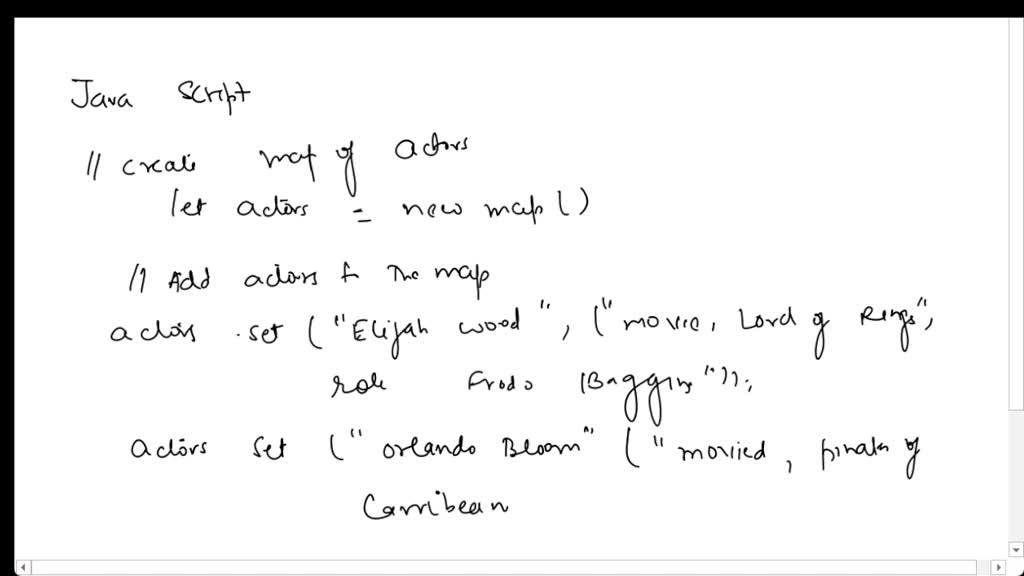 Java Script
// create map of actors
let actors = new map ()
// Add actors to The map
actors .set ("Elijah wood", ("movie, Lord of Rings",
role Frodo Baggins"));
actors set ("Orlando Bloom" ("movied, pirates of
Carribean